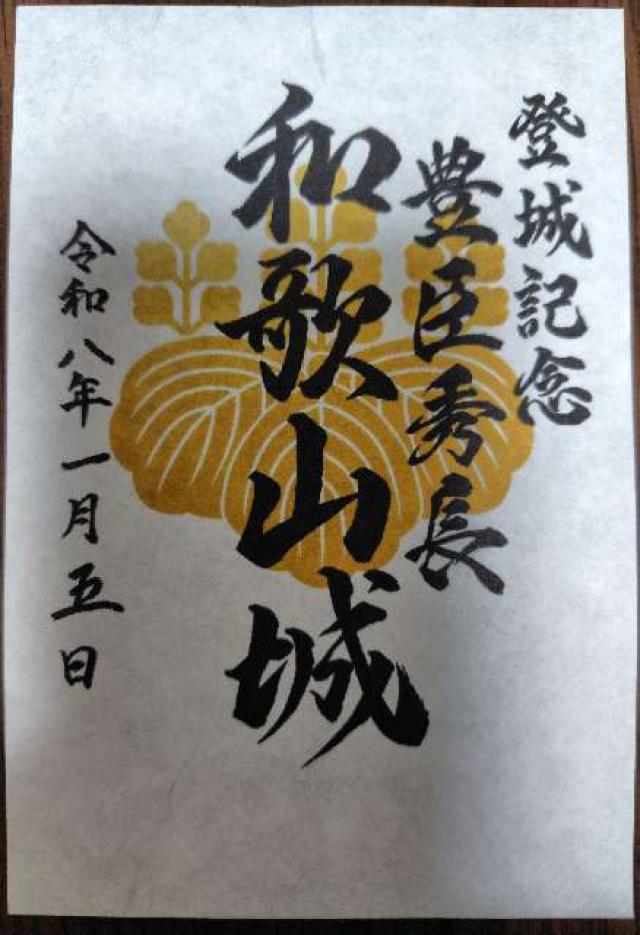 登城記念
豊臣秀長
和歌山城
令和八年一月五日